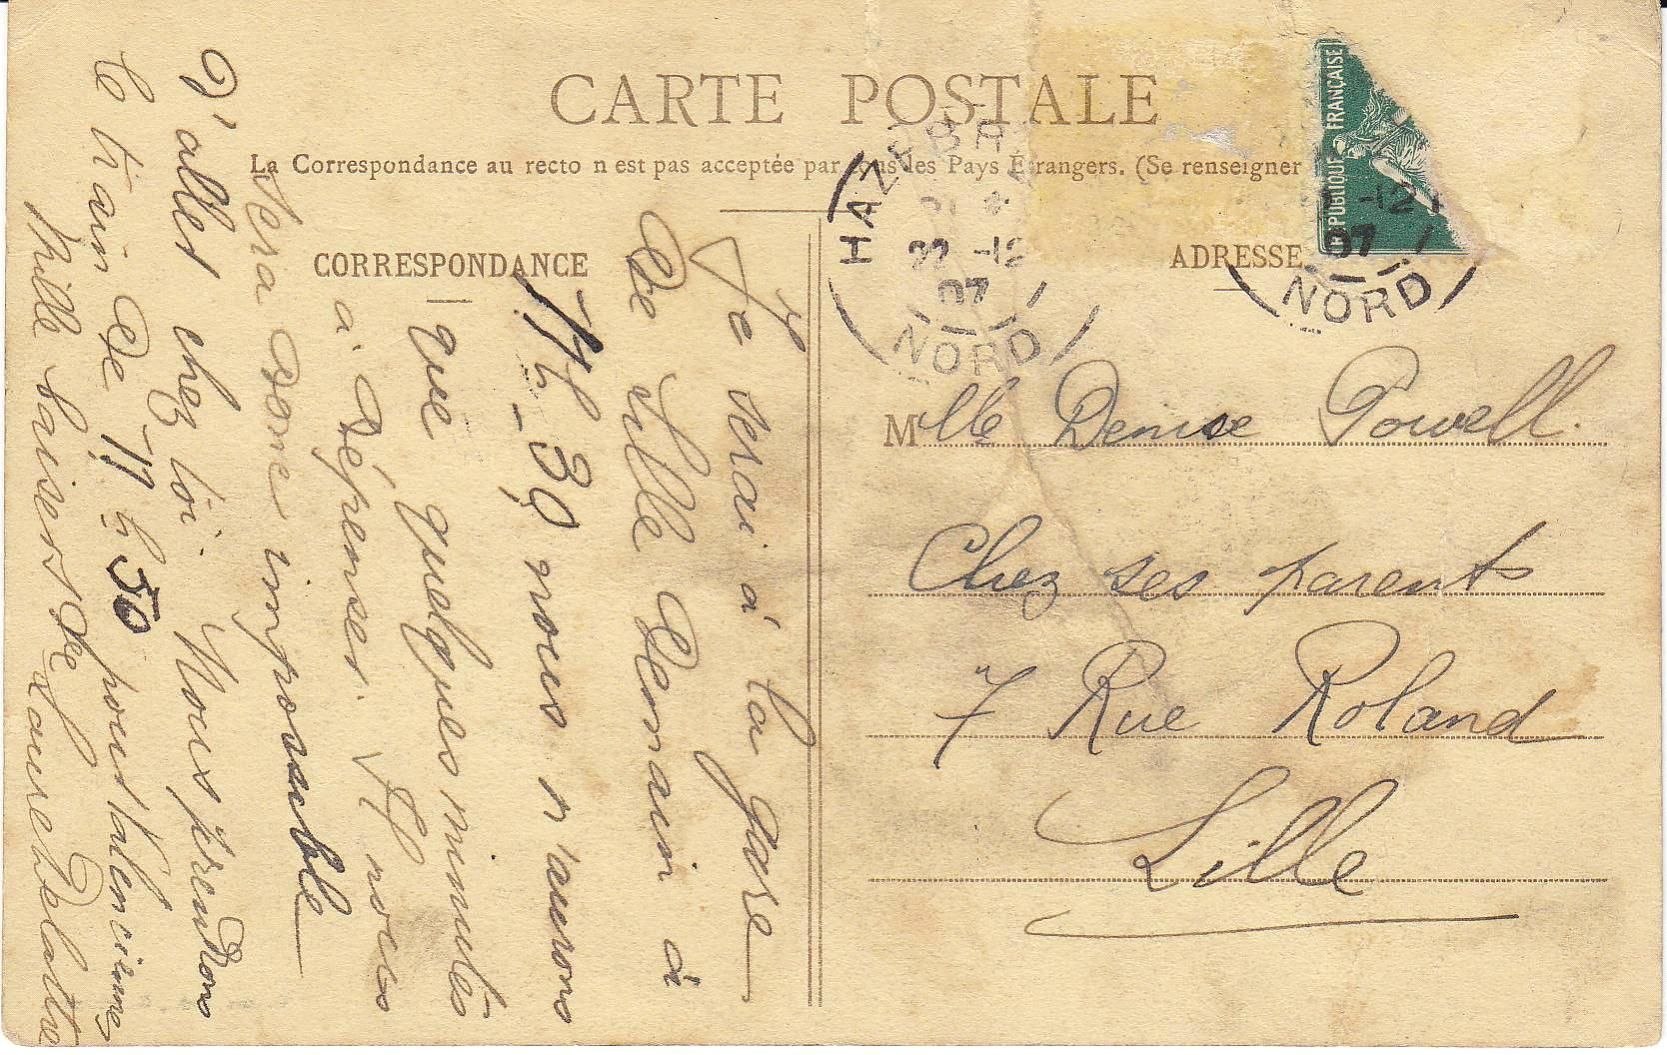 CARTE POSTALE
La Correspondance au recto n est pas acceptée par tous les Pays Etrangers. (Se renseigner
CORRESPONDANCE
Je serai à la gare
de Lille demain à
11h-30 nous n'aurons
que quelques minutes
à dépenser. Il nous
sera donc impossible
d'aller chez toi. Nous prendrons
le train de 11h50 pour Valenciennes
Mille baisers de Laure Delattre
ADRESSE
REPUBLIQUE FRANÇAISE
HAZEBR
22 -12
07
NORD
-12
07
NORD
Mlle Denise Powell.
Chez ses parents
7 Rue Roland
Lille